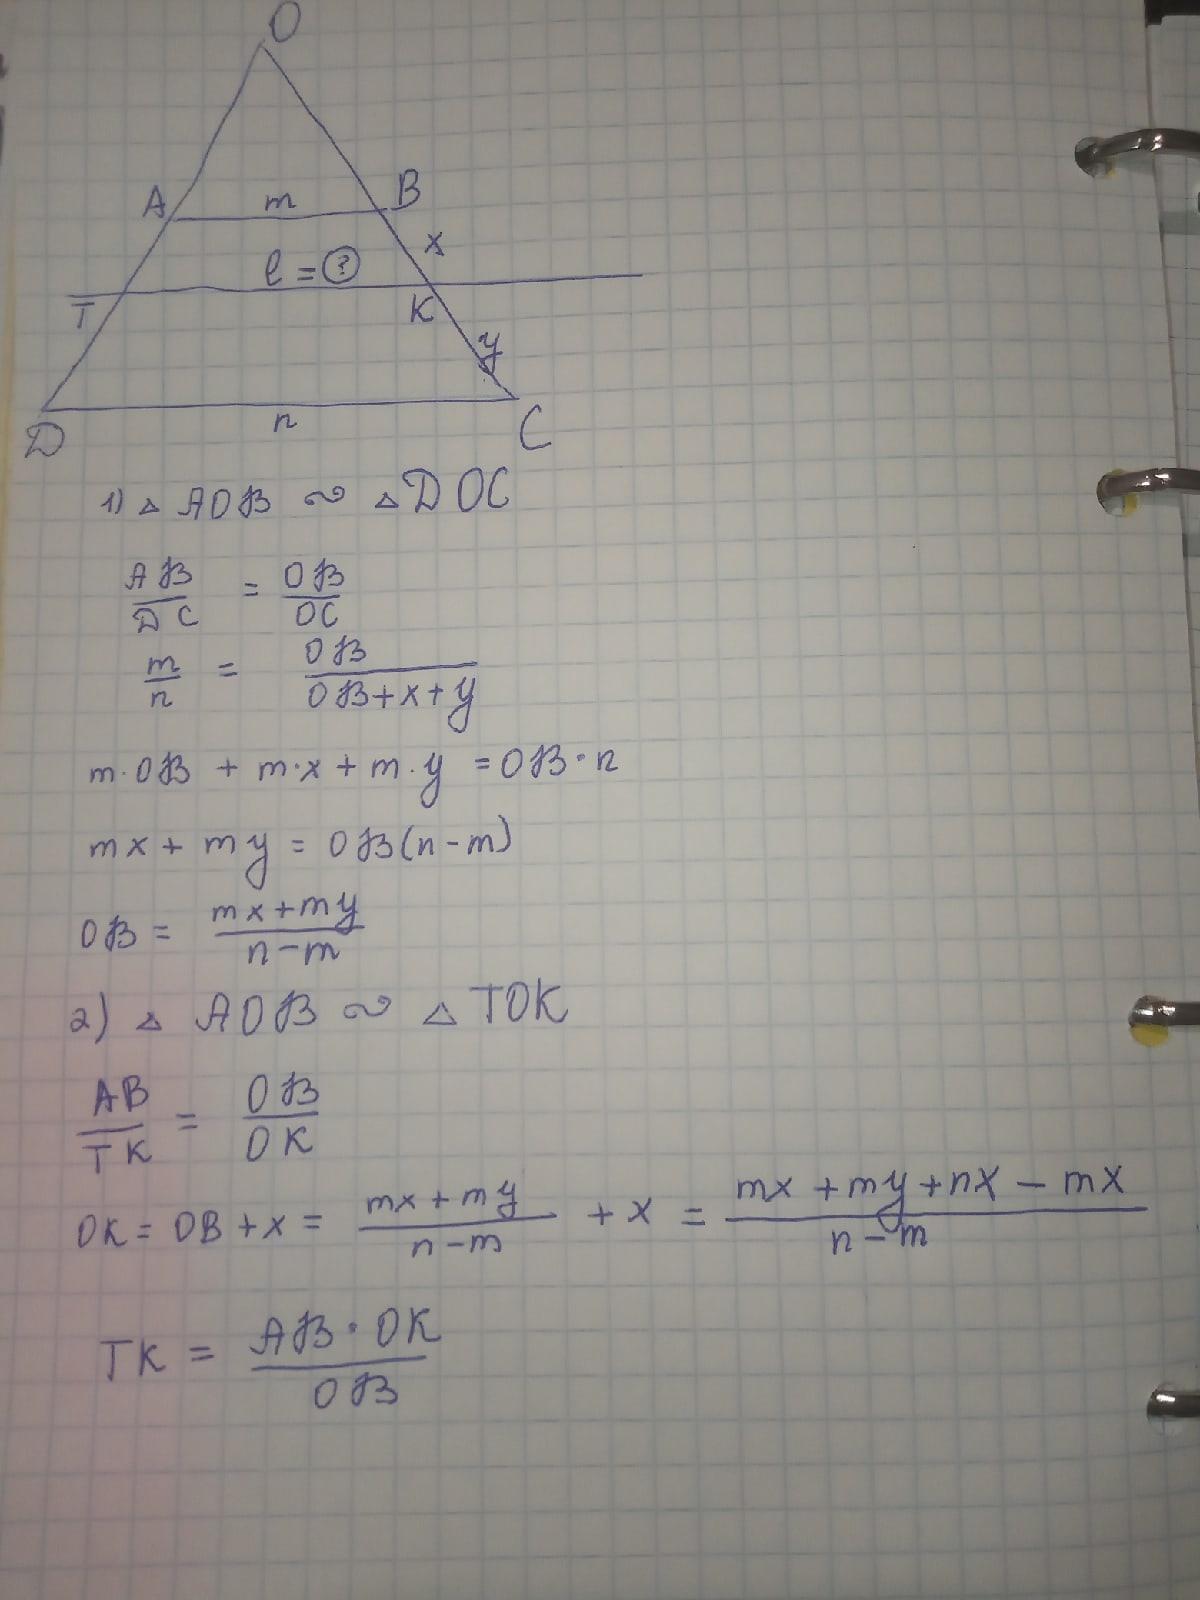 O
A m B
x
l = ?
T K
y
D n C
1) △ AOB ∾ △ DOC
AB/DC = OB/OC
m/n = OB/(OB+x+y)
m·OB + m·x + m·y = OB·n
mx + my = OB(n-m)
OB = (mx+my)/(n-m)
2) △ AOB ∾ △ TOK
AB/TK = OB/OK
OK = OB + x = (mx+my)/(n-m) + x = (mx+my+nx-mx)/(n-m)
TK = (AB·OK)/OB